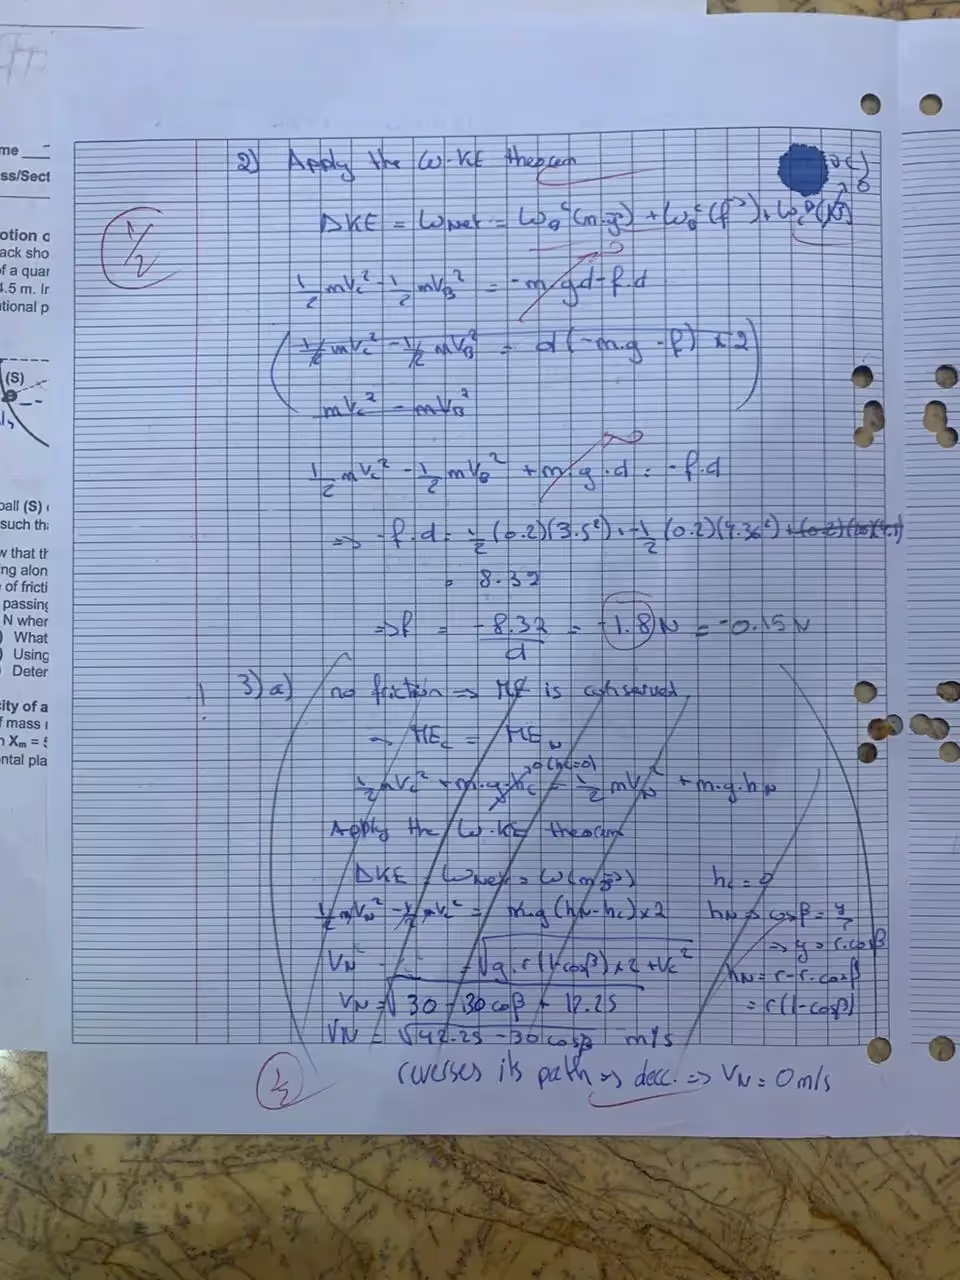 me
ss/Sect
otion o
ack sho
f a quar
4.5 m. Ir
tional p
(S)
ball (S)
such tha
w that th
ng alon
of fricti
passing
N wher
) What
) Using
Deter
city of a
f mass
n Xm = 5
ntal pla
2) Apply the W-KE theorem
ΔKE = Wnet = W (m.g) + W (f) + W (N) 0
1/2
1/2 mVc² - 1/2 mVB² = -m.g.d - f.d
1/2 mVc² - 1/2 mVB² = d(-m.g - f) x2
mVc² - mVB²
1/2 mVc² - 1/2 mVB² + m.g.d = -f.d
⇒ -f.d = 1/2 (0.2)(3.5²) + -1/2 (0.2)(4.36²)
= 8.32
⇒ f = -8.32/d = -1.8 N = -0.15 N
3) a) no friction ⇒ ME is conserved
→ MEc = MEN
1/2 mVc² + m.g.hc 0 (hc=0) = 1/2 mVN² + m.g.hN
Apply the W-KE theorem
ΔKE = Wnet = W(mg)
hc = 0
1/2 mVN² - 1/2 mVc² = m.g(hN-hc) x2
hN ⇒ cosβ = y/r
⇒ y = r.cosβ
VN = √g.r(1-cosβ)x2 + Vc²
hN = r-r.cosβ
= r(1-cosβ)
VN = √30 - 30cosβ + 12.25
VN = √42.25 - 30cosβ m/s
reverses its path ⇒ decc. ⇒ VN = 0m/s